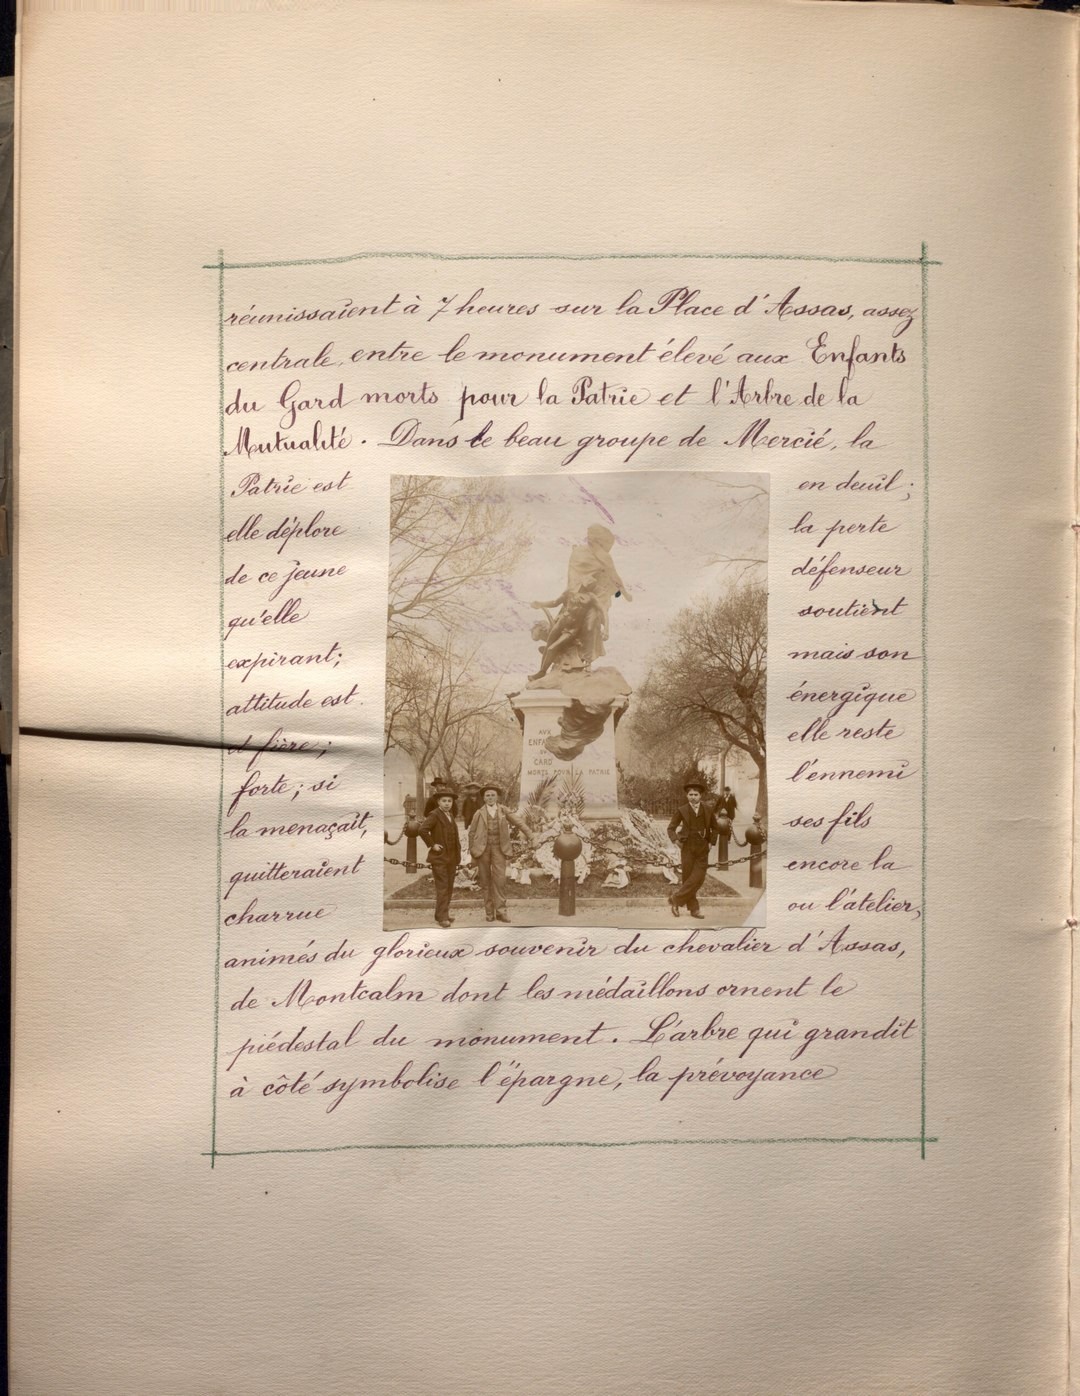 réunissaient à 7 heures sur la Place d'Assas, assez
centrale, entre le monument élevé aux Enfants
du Gard morts pour la Patrie et l'Arbre de la
Mutualité. Dans le beau groupe de Mercié, la
Patrie est en deuil;
elle déplore la perte
de ce jeune défenseur
qu'elle soutient
expirant; mais son
attitude est énergique
et fière; elle reste
forte; si l'ennemi
la menaçait, ses fils
quitteraient encore la
charrue ou l'atelier,
animés du glorieux souvenir du chevalier d'Assas,
de Montcalm dont les médaillons ornent le
piédestal du monument. L'arbre qui grandit
à côté symbolise l'épargne, la prévoyance
AUX
ENFANTS
DU
GARD
MORTS POUR LA PATRIE